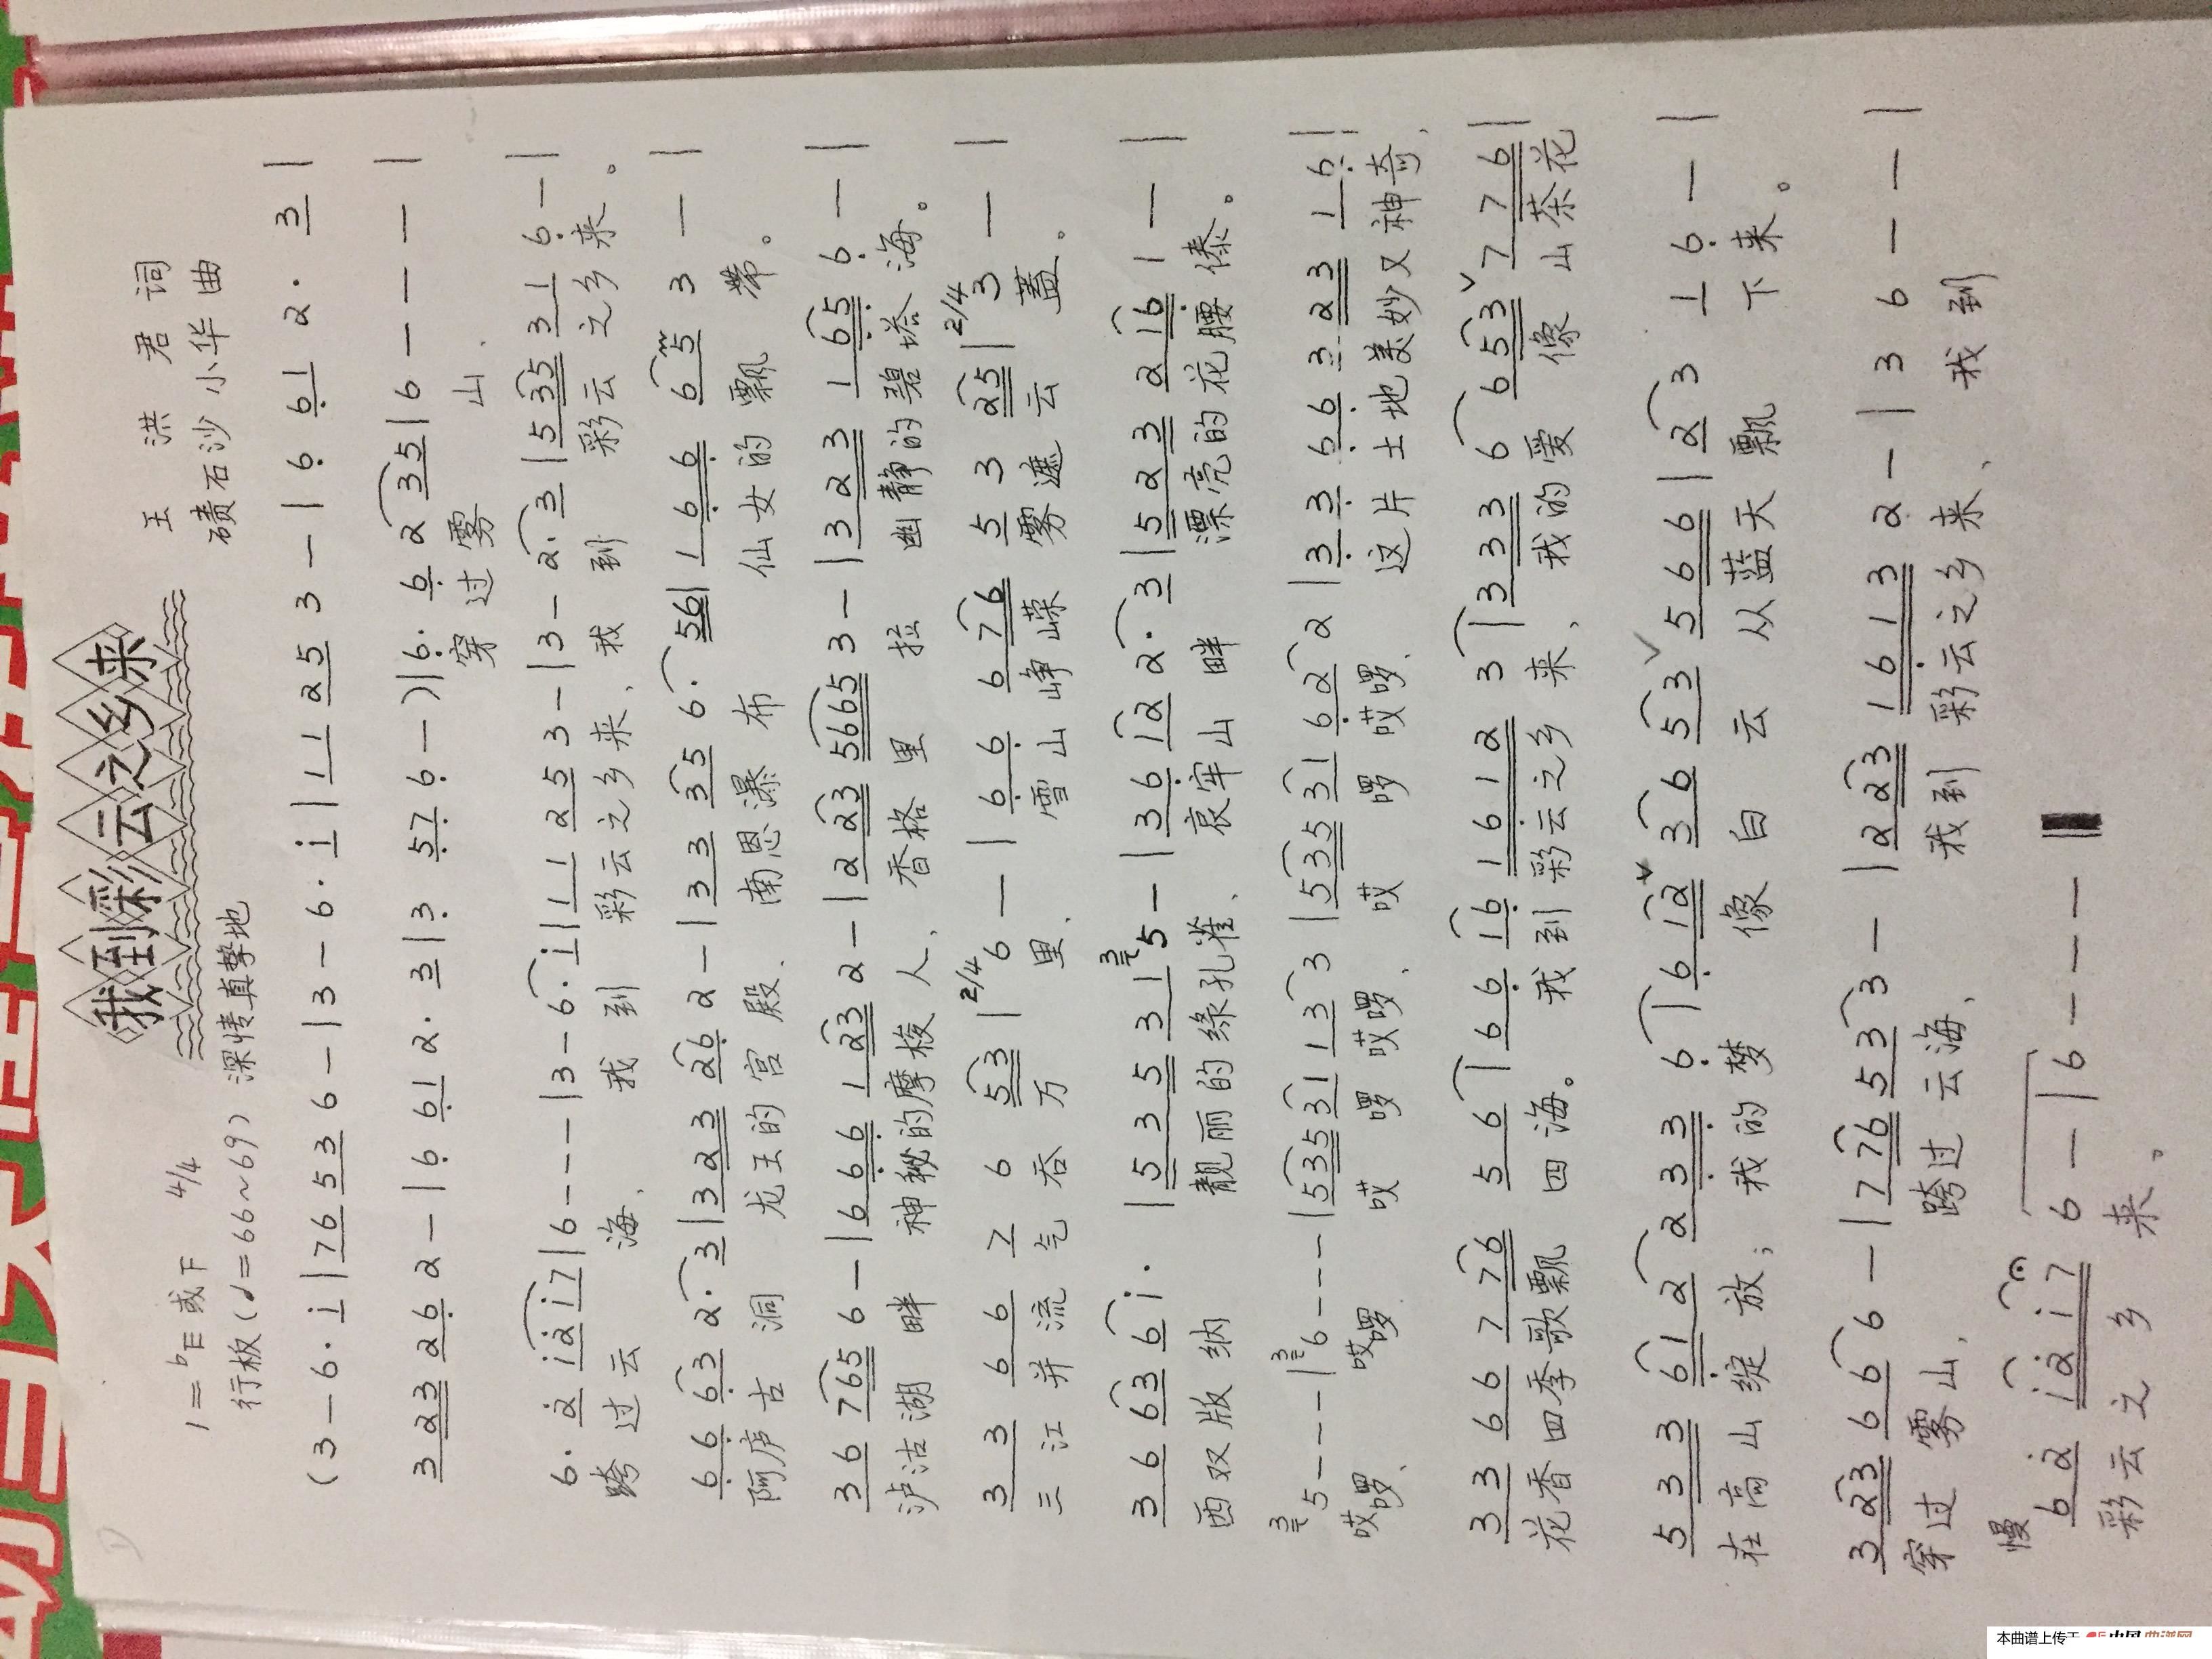 我到彩云之乡来
王洪君 词
碛石沙 小华 曲
1=♭E 或下 4/4
行板(♩=66~69) 深情真挚地
(3 — 6· i | 76 53 6 — | 3 — 6· i | 1 1 2 5 3 — | 6 61 2· 3 |
3 23 26 2 — | 6 61 2· 3 | 3 57 6 — ) | 6· 6 2 35 | 6 — — — |
穿过雾山、
6· 2 i2i7 | 6 — — — | 3 — 6· i | 1 1 2 5 3 — | 3 — 2· 3 | 5 35 3 1 6 — |
跨过云海、我到彩云之乡来、我到彩云之乡来。
6 6 6 63 2· 3 | 3 2 3 26 2 — | 3 3 35 6· 56 | 1 6 6 65 3 — |
阿庐古洞龙王的宫殿、南恩瀑布仙女的飘带。
3 6 765 6 — | 6 6 6 1 23 2 — | 2 23 5665 3 — | 3 2 3 1 65 6 — |
泸沽湖畔神秘的摩梭人、香格里拉幽静的碧塔海。
3 3 6 6 7 6 53 | 2/4 6 — | 6 6 6 76 5 3 25 | 2/4 3 — |
三江并流气吞万里、雪山峥嵘雾遮云蓋。
3 6 63 6 i· | 5 3 5 3 1 5 — | 3 6 12 2· 3 | 5 2 3 2 16 1 — |
西双版纳靓丽的绿孔雀、哀牢山畔漂亮的花腰傣。
5 — — — | 6 — — — | 535 31 1 3 3 | 535 31 6 2 2 | 3 3 6 6 3 2 3 1 6 |
哎啰、哎啰哎啰哎啰、哎啰哎啰、这片土地美妙又神奇、
3 3 6 6 7 76 5 6 | 6 6 16 1 6 1 2 3 | 3 3 3 6 6 53 7 7 6 |
花香四季歌飘四海。我到彩云之乡来、我的爱像山茶花
5 3 3 61 2 2 3 3 6 | 6 12 3 6 5 3 5 6 6 | 2 3 1 6 — |
在高山绽放；我的梦像白云从蓝天飘下来。
3 23 6 6 6 — | 7 76 5 3 3 — | 2 23 1 6 1 3 2 — | 3 6 — — |
穿过雾山、跨过云海、我到彩云之乡来、我到
慢
6 2 i2 i7 6 — | 6 — — — ‖
彩云之乡来。
本曲谱上传于 中国曲谱网